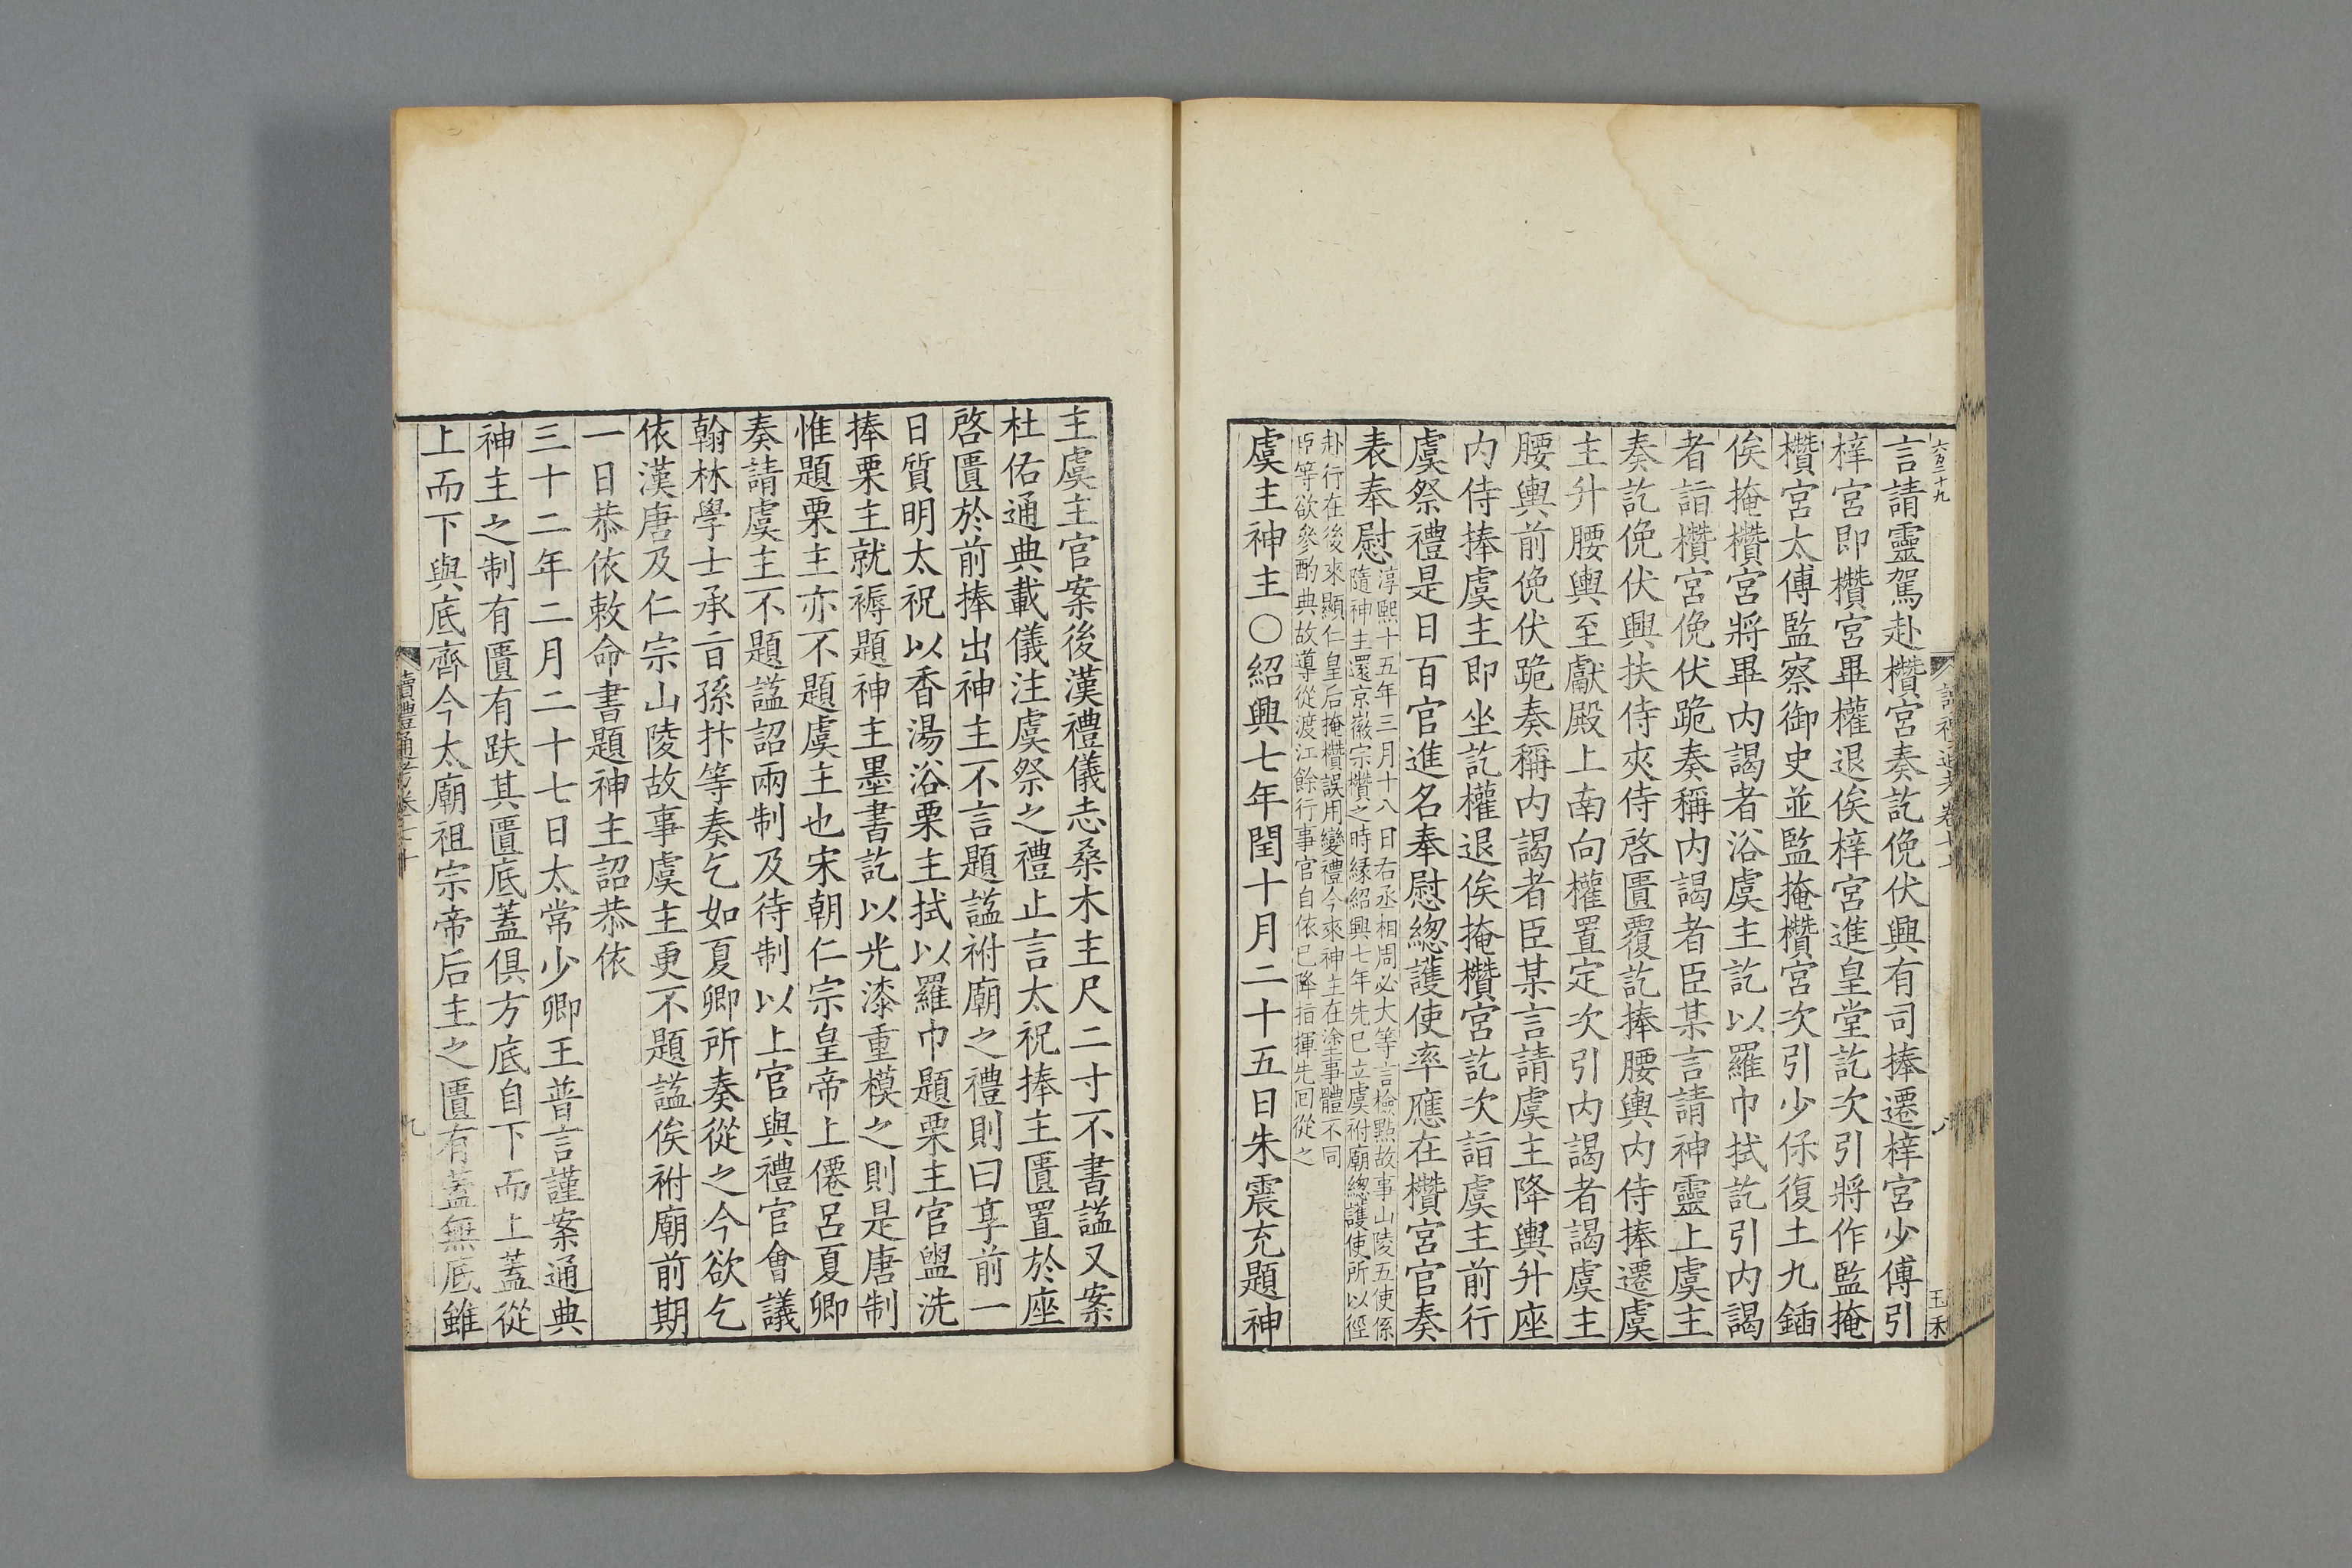 言請靈駕赴欑宮奏訖俛伏興有司捧遷梓宮少傅引
梓宮即欑宮畢權退俟梓宮進皇堂訖次引將作監掩
欑宮太傅監察御史並監掩欑宮次引少保復土九鍤
俟掩欑宮將畢內謁者浴虞主訖以羅巾拭訖引內謁
者詣欑宮俛伏跪奏稱內謁者臣某言請神靈上虞主
奏訖俛伏興扶侍夾侍啓匱覆訖捧腰輿內侍捧遷虞
主升腰輿至獻殿上南向權置定次引內謁者謁虞主
腰輿前俛伏跪奏稱內謁者臣某言請虞主降輿升座
內侍捧虞主即坐訖權退俟掩欑宮訖次詣虞主前行
虞祭禮是日百官進名奉慰總護使率應在欑宮官奏
表奉慰
淳熙十五年三月十八日右丞相周必大等言檢點故事山陵五使係
隨神主還京徽宗欑之時緣紹興七年先已立虞祔廟總護使所以徑
赴行在後來顯仁皇后掩欑誤用變禮今來神主在塗事體不同
臣等欲參酌典故導從渡江餘行事官自依已降指揮先回從之
虞主神主○紹興七年閏十月二十五日朱震充題神
主虞主官案後漢禮儀志桑木主尺二寸不書諡又案
杜佑通典載儀注虞祭之禮止言太祝捧主匱置於座
啓匱於前捧出神主不言題諡祔廟之禮則曰享前一
日質明太祝以香湯浴栗主拭以羅巾題栗主官盥洗
捧栗主就褥題神主墨書訖以光漆重模之則是唐制
惟題栗主亦不題虞主也宋朝仁宗皇帝上僊呂夏卿
奏請虞主不題諡詔兩制及待制以上官與禮官會議
翰林學士承旨孫抃等奏乞如夏卿所奏從之今欲乞
依漢唐及仁宗山陵故事虞主更不題諡俟祔廟前期
一日恭依敕命書題神主詔恭依
三十二年二月二十七日太常少卿王普言謹案通典
神主之制有匱有趺其匱底蓋俱方底自下而上蓋從
上而下與底齊今太廟祖宗帝后主之匱有蓋無底雖
讀禮通考卷
九